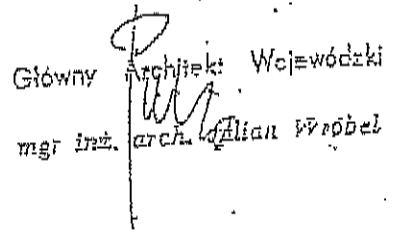 Główny Architekt Wojewódzki
mgr inż. arch. Julian Wróbel